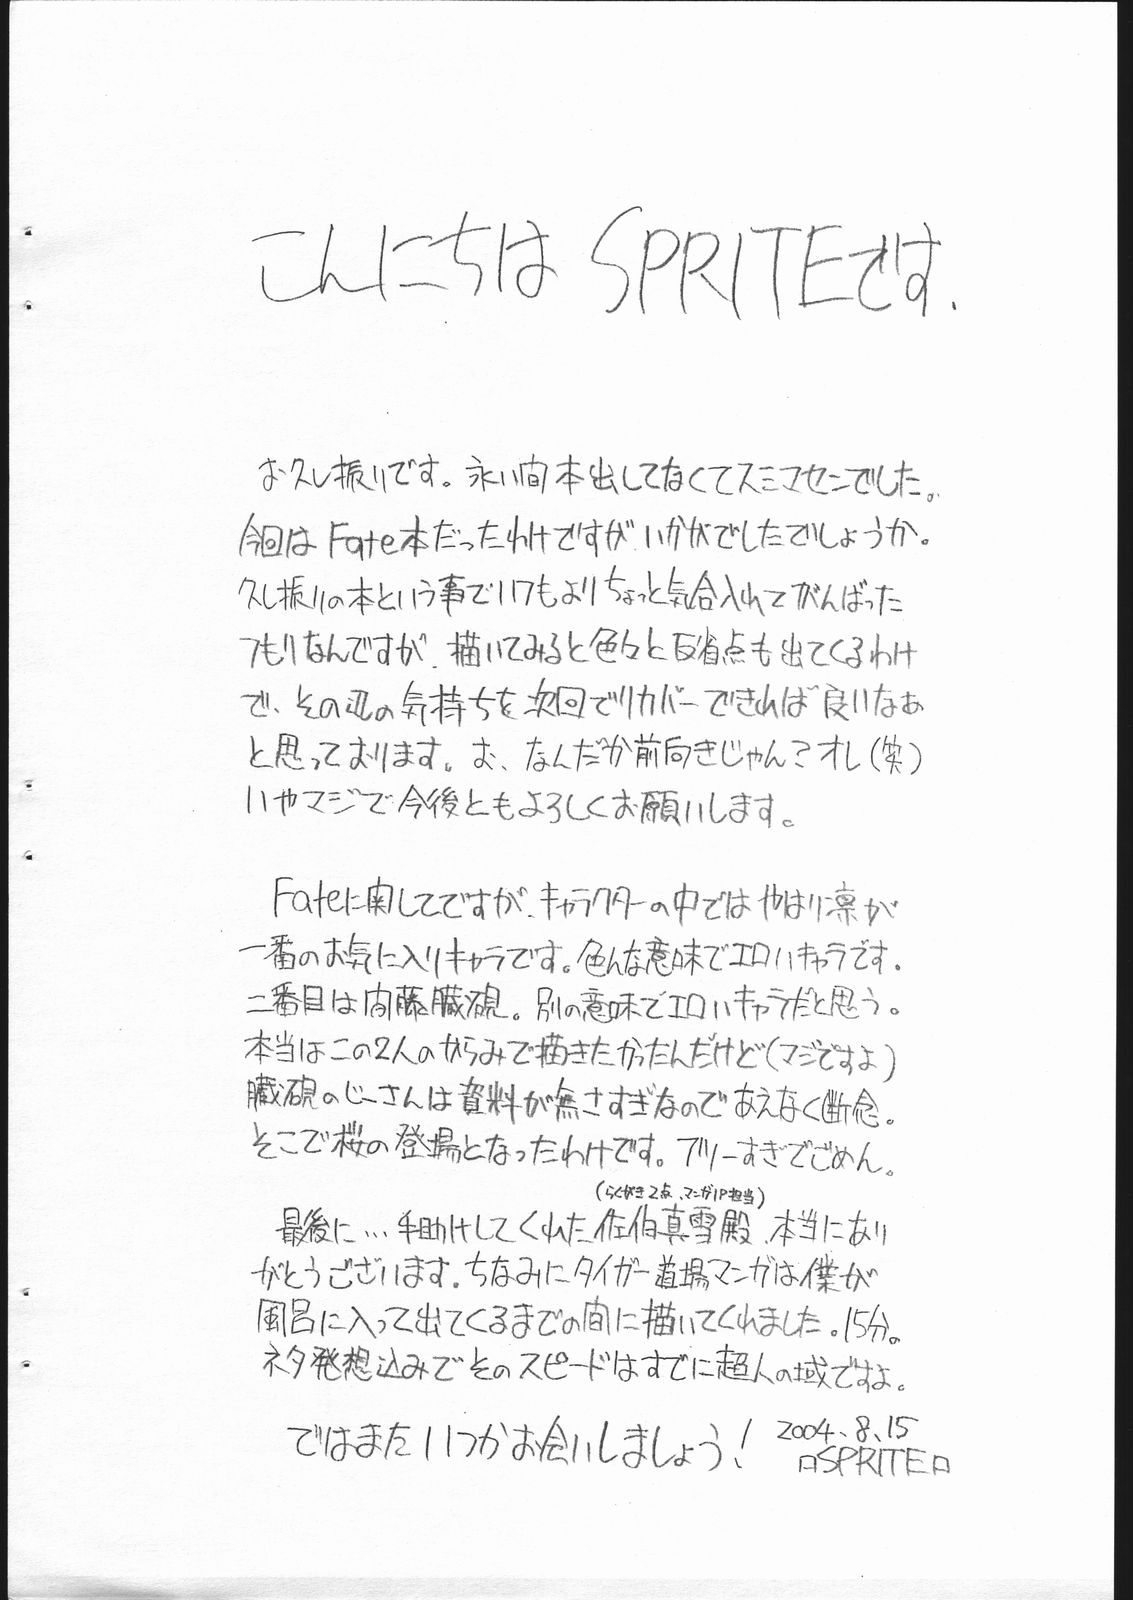 こんにちは SPRITEです.
お久し振りです。永い間本出してなくてスミマセンでした。
今回はFate本だったわけですが、いかがでしたでしょうか。
久し振りの本という事でいつもよりちょっと気合入れてがんばった
つもりなんですが、描いてみると色々と反省点も出てくるわけ
で、その辺の気持ちを次回でリカバーできれば良いなぁ
と思っております。お、なんだか前向きじゃん？オレ(笑)
いやマジで今後ともよろしくお願いします。
Fateに関してですが、キャラクターの中ではやはり凛が
一番のお気に入りキャラです。色んな意味でエロいキャラです.
二番目は間藤臓硯。別の意味でエロいキャラだと思う。
本当はこの2人のからみで描きたかったんだけど(マジですよ)
臓硯のじーさんは資料が無さすぎなのであえなく断念。
そこで桜の登場となったわけです。フリーすぎでごめん。
(らくがき2点、マンガ1P担当)
最後に…手助けしてくれた佐伯真雪殿、本当にあり
がとうございます.ちなみにタイガー道場マンガは僕が
風呂に入って出てくるまでの間に描いてくれました。15分。
ネタ発想込みでそのスピードはすでに超人の域ですよ。
ではまたいつかお会いしましょう!
2004.8.15
ロSPRITEロ